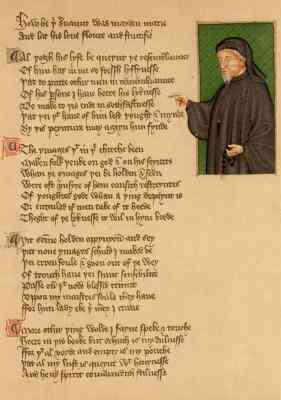 How he þi seruaunt was mayden marie
And lat his loue floure and fructifie
Al þogh his lyfe be queynt þe resemblaunce
Of him haþ in me so fressh lyflynesse
Þat to putte othir men in remembraunce
Of his persone I haue heere his lyknesse
Do make to þis ende in sothfastnesse
Þat þei þt haue of him lest þought & mynde
By þis peynture may ageyn him fynde
The ymages þt in þe chirche been
Maken folk þenke on god & on his seyntes
Whan þe ymages þei beholden & seen
Were oft vnsyte of hem causith restreyntes
Of þoughtes gode whan a þing depeynt is
Or entailed if men take of it heede
Thoght of þe lyknesse it wil in hym brede
Yit somme holden oppynyoun and sey
Þat none ymages schuld I maked be
Þei erren foule & goon out of þe wey
Of trouth haue þei scant sensibilite
Passe ouer þt now blessid trinite
Vppon my maistres soule mercy haue
For him lady eke þi mercy I craue
More othir þing wolde I fayne speke & touche
Heere in þis booke but schuch is my dulnesse
For þt al voyde and empty is my pouche
Þat al my lust is queynt wt heuynesse
And heuy spirit comaundith stilnesse